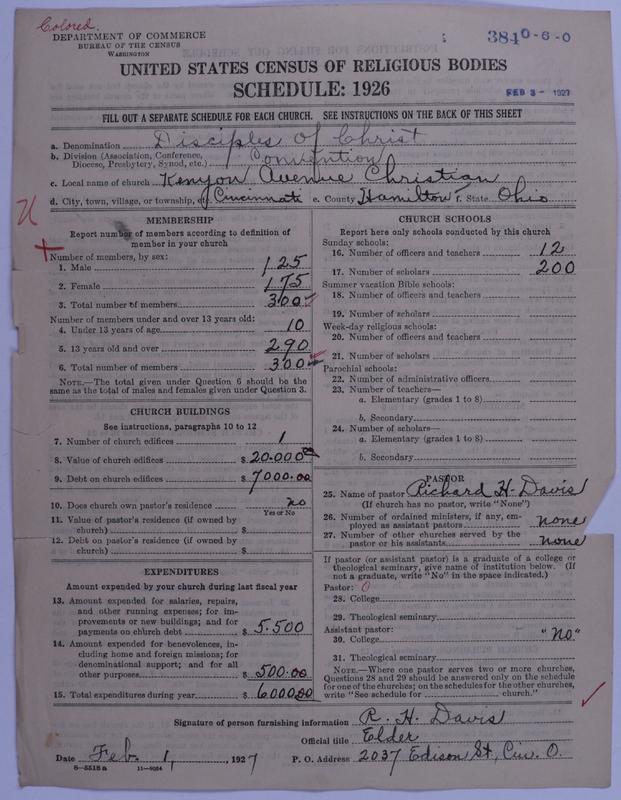 Colored.
DEPARTMENT OF COMMERCE
BUREAU OF THE CENSUS
WASHINGTON
3840-6-0
UNITED STATES CENSUS OF RELIGIOUS BODIES
SCHEDULE: 1926
FEB 3 - 1927
FILL OUT A SEPARATE SCHEDULE FOR EACH CHURCH. SEE INSTRUCTIONS ON THE BACK OF THIS SHEET
a. Denomination Disciples of Christ
b. Division (Association, Conference, Diocese, Presbytery, Synod, etc.) Convention
c. Local name of church Kenyon Avenue Christian
d. City, town, village, or township, of Cincinnati e. County Hamilton f. State Ohio
MEMBERSHIP
Report number of members according to definition of
member in your church
Number of members, by sex:
1. Male 125
2. Female 175
3. Total number of members 300
Number of members under and over 13 years old:
4. Under 13 years of age 10
5. 13 years old and over 290
6. Total number of members 300
NOTE.—The total given under Question 6 should be
same as the total of males and females given under Question 3.
CHURCH BUILDINGS
See instructions, paragraphs 10 to 12
7. Number of church edifices 1
8. Value of church edifices $ 20.000
9. Debt on church edifices $ 7000.00
10. Does church own pastor's residence no
Yes or No
11. Value of pastor's residence (if owned by
church) $
12. Debt on pastor's residence (if owned by
church) $
EXPENDITURES
Amount expended by your church during last fiscal year
13. Amount expended for salaries, repairs,
and other running expenses; for im-
provements or new buildings; and for
payments on church debt $ 5.500
14. Amount expended for benevolences, in-
cluding home and foreign missions; for
denominational support; and for all
other purposes $ 500.00
15. Total expenditures during year $ 6000.00
CHURCH SCHOOLS
Report here only schools conducted by this church
Sunday schools:
16. Number of officers and teachers 12
17. Number of scholars 200
Summer vacation Bible schools:
18. Number of officers and teachers
19. Number of scholars
Week-day religious schools:
20. Number of officers and teachers
21. Number of scholars
Parochial schools:
22. Number of administrative officers
23. Number of teachers—
a. Elementary (grades 1 to 8)
b. Secondary
24. Number of scholars—
a. Elementary (grades 1 to 8)
b. Secondary
PASTOR
25. Name of pastor Richard H. Davis
(If church has no pastor, write "None")
26. Number of ordained ministers, if any, em-
ployed as assistant pastors none
27. Number of other churches served by the
pastor or his assistants none
If pastor (or assistant pastor) is a graduate of a college or
theological seminary, give name of institution below. (If
not a graduate, write "No" in the space indicated.)
Pastor: 0
28. College
29. Theological seminary
Assistant pastor:
30. College "no"
31. Theological seminary
NOTE.—Where one pastor serves two or more churches,
Questions 28 and 29 should be answered only on the schedule
for one of the churches; on the schedules for the other churches,
write "See schedule for church."
Signature of person furnishing information R. H. Davis
Official title Elder
Date Feb. 1, 1927 P. O. Address 2037 Edison St, Cin. O.
8—5518 a 11—9024